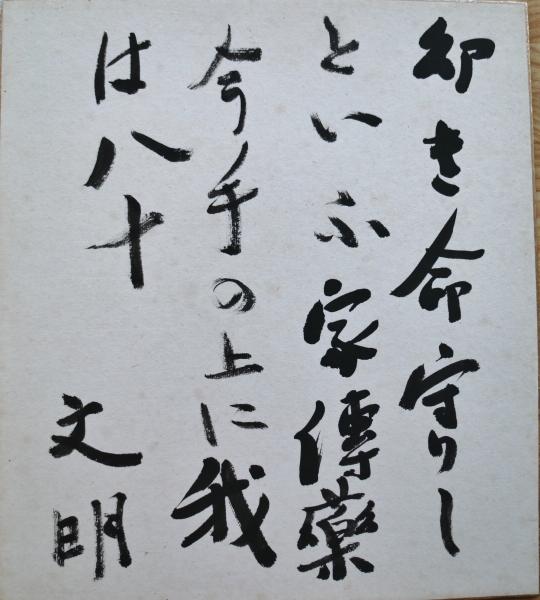 幼き命守りし
といふ家傳薬
今手の上に我
は八十
文明